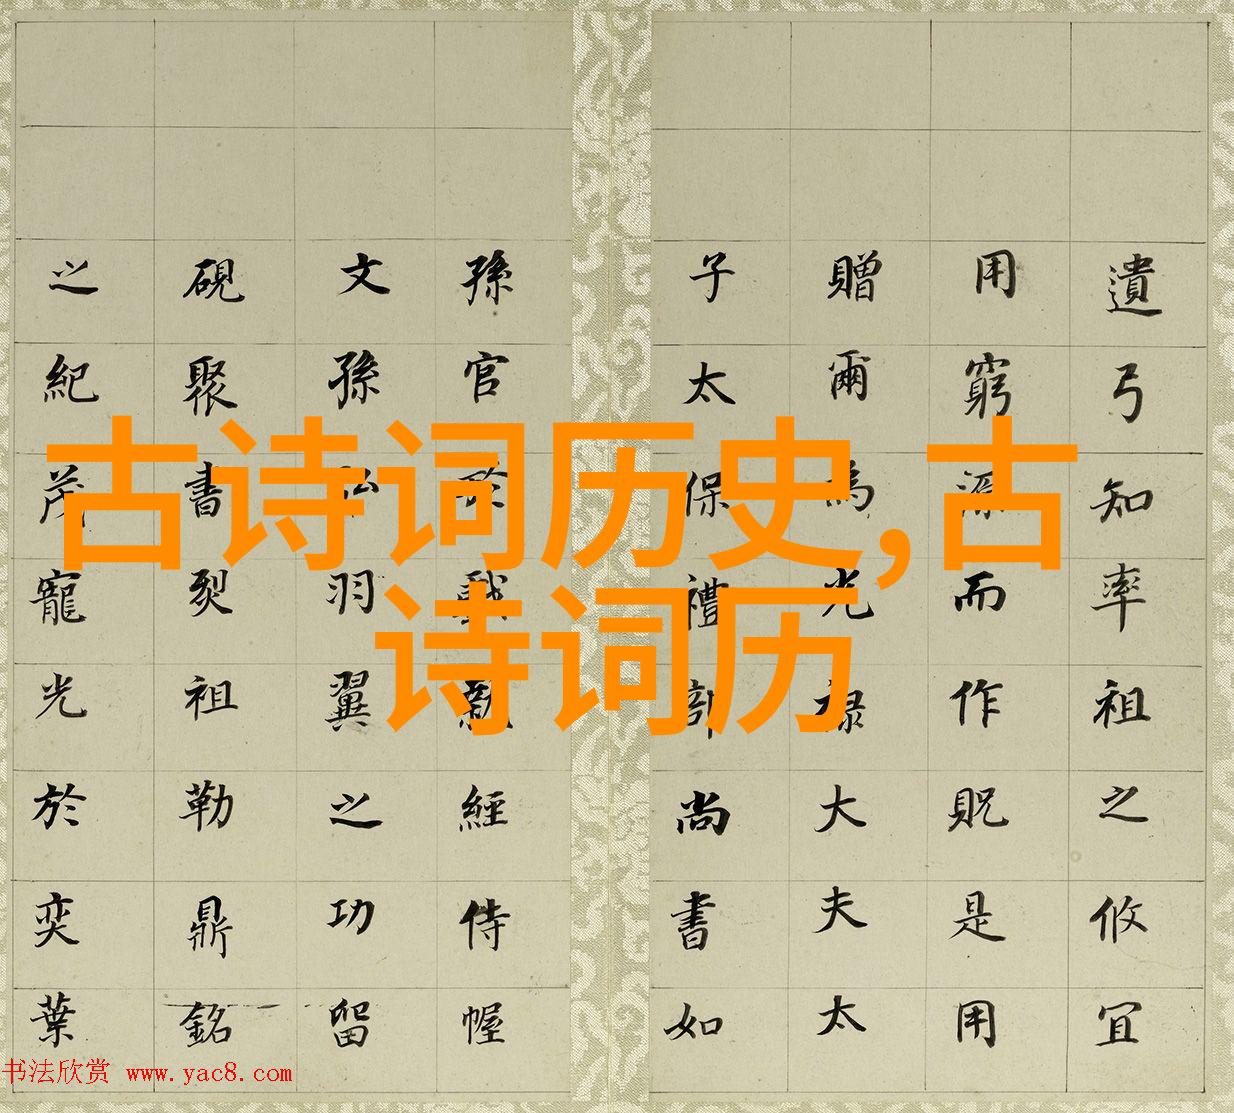 遺弓知率祖之攸宜
用窮源而作貺是用
贈爾為光祿大夫太
子太保禮部尚書如
孫官於戲經侍幄
文孫羽翼之功留
硯聚書裂祖勒鼎銘
之紀茂寵光於奕葉
古诗词历史,古
诗词历
书法欣赏 www.yac8.com